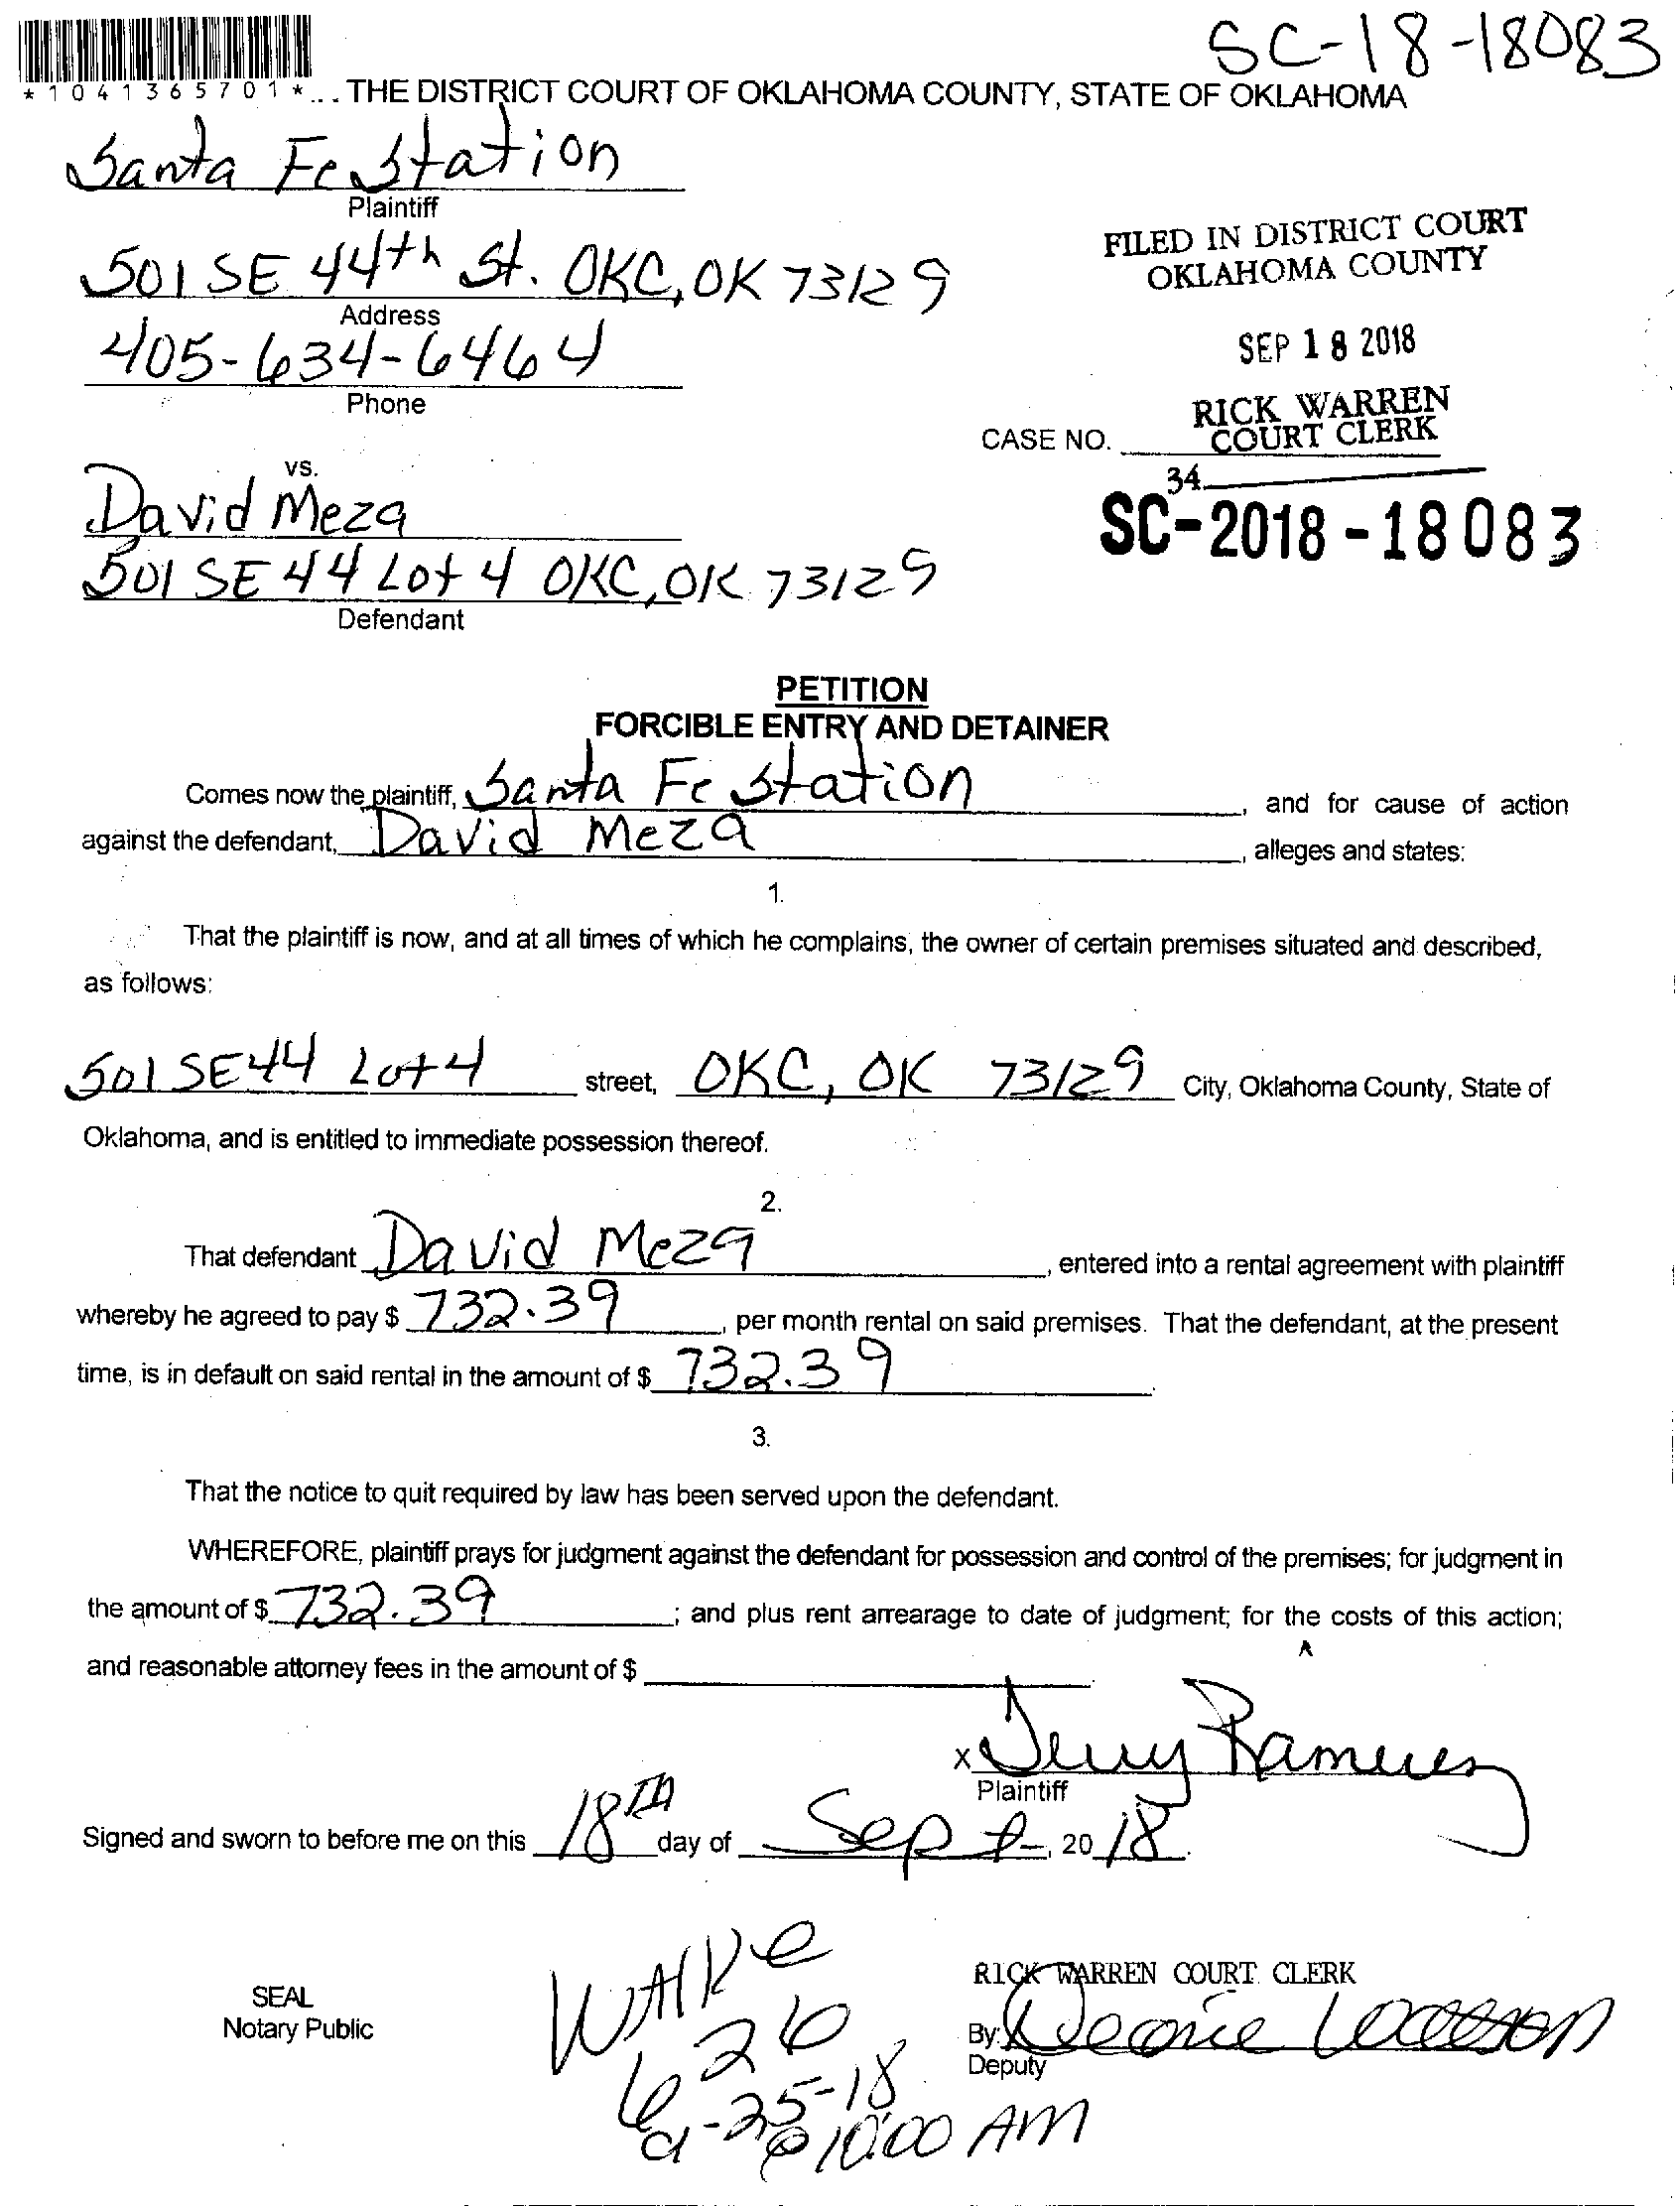 SC-18-18083
*1041365701* ... THE DISTRICT COURT OF OKLAHOMA COUNTY, STATE OF OKLAHOMA
Santa Fe Station
Plaintiff
501 SE 44th St. OKC, OK 73129
Address
405-634-6464
Phone
FILED IN DISTRICT COURT
OKLAHOMA COUNTY
SEP 18 2018
RICK WARREN
COURT CLERK
CASE NO.
34
SC-2018-18083
vs.
David Meza
501 SE 44 Lot 4 OKC, OK 73129
Defendant
PETITION
FORCIBLE ENTRY AND DETAINER
Comes now the plaintiff, Santa Fe Station, and for cause of action
against the defendant, David Meza, alleges and states:
1.
That the plaintiff is now, and at all times of which he complains, the owner of certain premises situated and described,
as follows:
501 SE 44 Lot 4 street, OKC, OK 73129 City, Oklahoma County, State of
Oklahoma, and is entitled to immediate possession thereof.
2.
That defendant David Meza, entered into a rental agreement with plaintiff
whereby he agreed to pay $ 732.39, per month rental on said premises. That the defendant, at the present
time, is in default on said rental in the amount of $ 732.39.
3.
That the notice to quit required by law has been served upon the defendant.
WHEREFORE, plaintiff prays for judgment against the defendant for possession and control of the premises; for judgment in
the amount of $ 732.39; and plus rent arrearage to date of judgment; for the costs of this action;
and reasonable attorney fees in the amount of $
x Jerry Ramirez
Plaintiff
Signed and sworn to before me on this 18TH day of Sept, 2018.
SEAL
Notary Public
RICK WARREN COURT CLERK
By:
Deputy
WAlKe
626
9-25-18
@ 10:00 AM